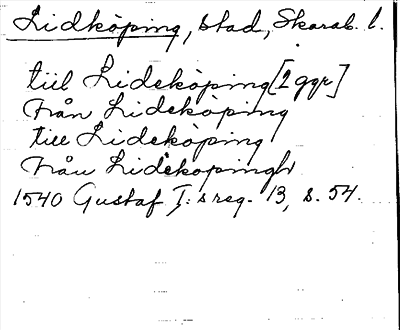 Lidköping, stad, Skarab. l.
till Lideköping [2 ggr]
Från Lideköping
till Lideköping
Från Lidekopingh
1540 Gustaf I:s reg. 13, s. 54.